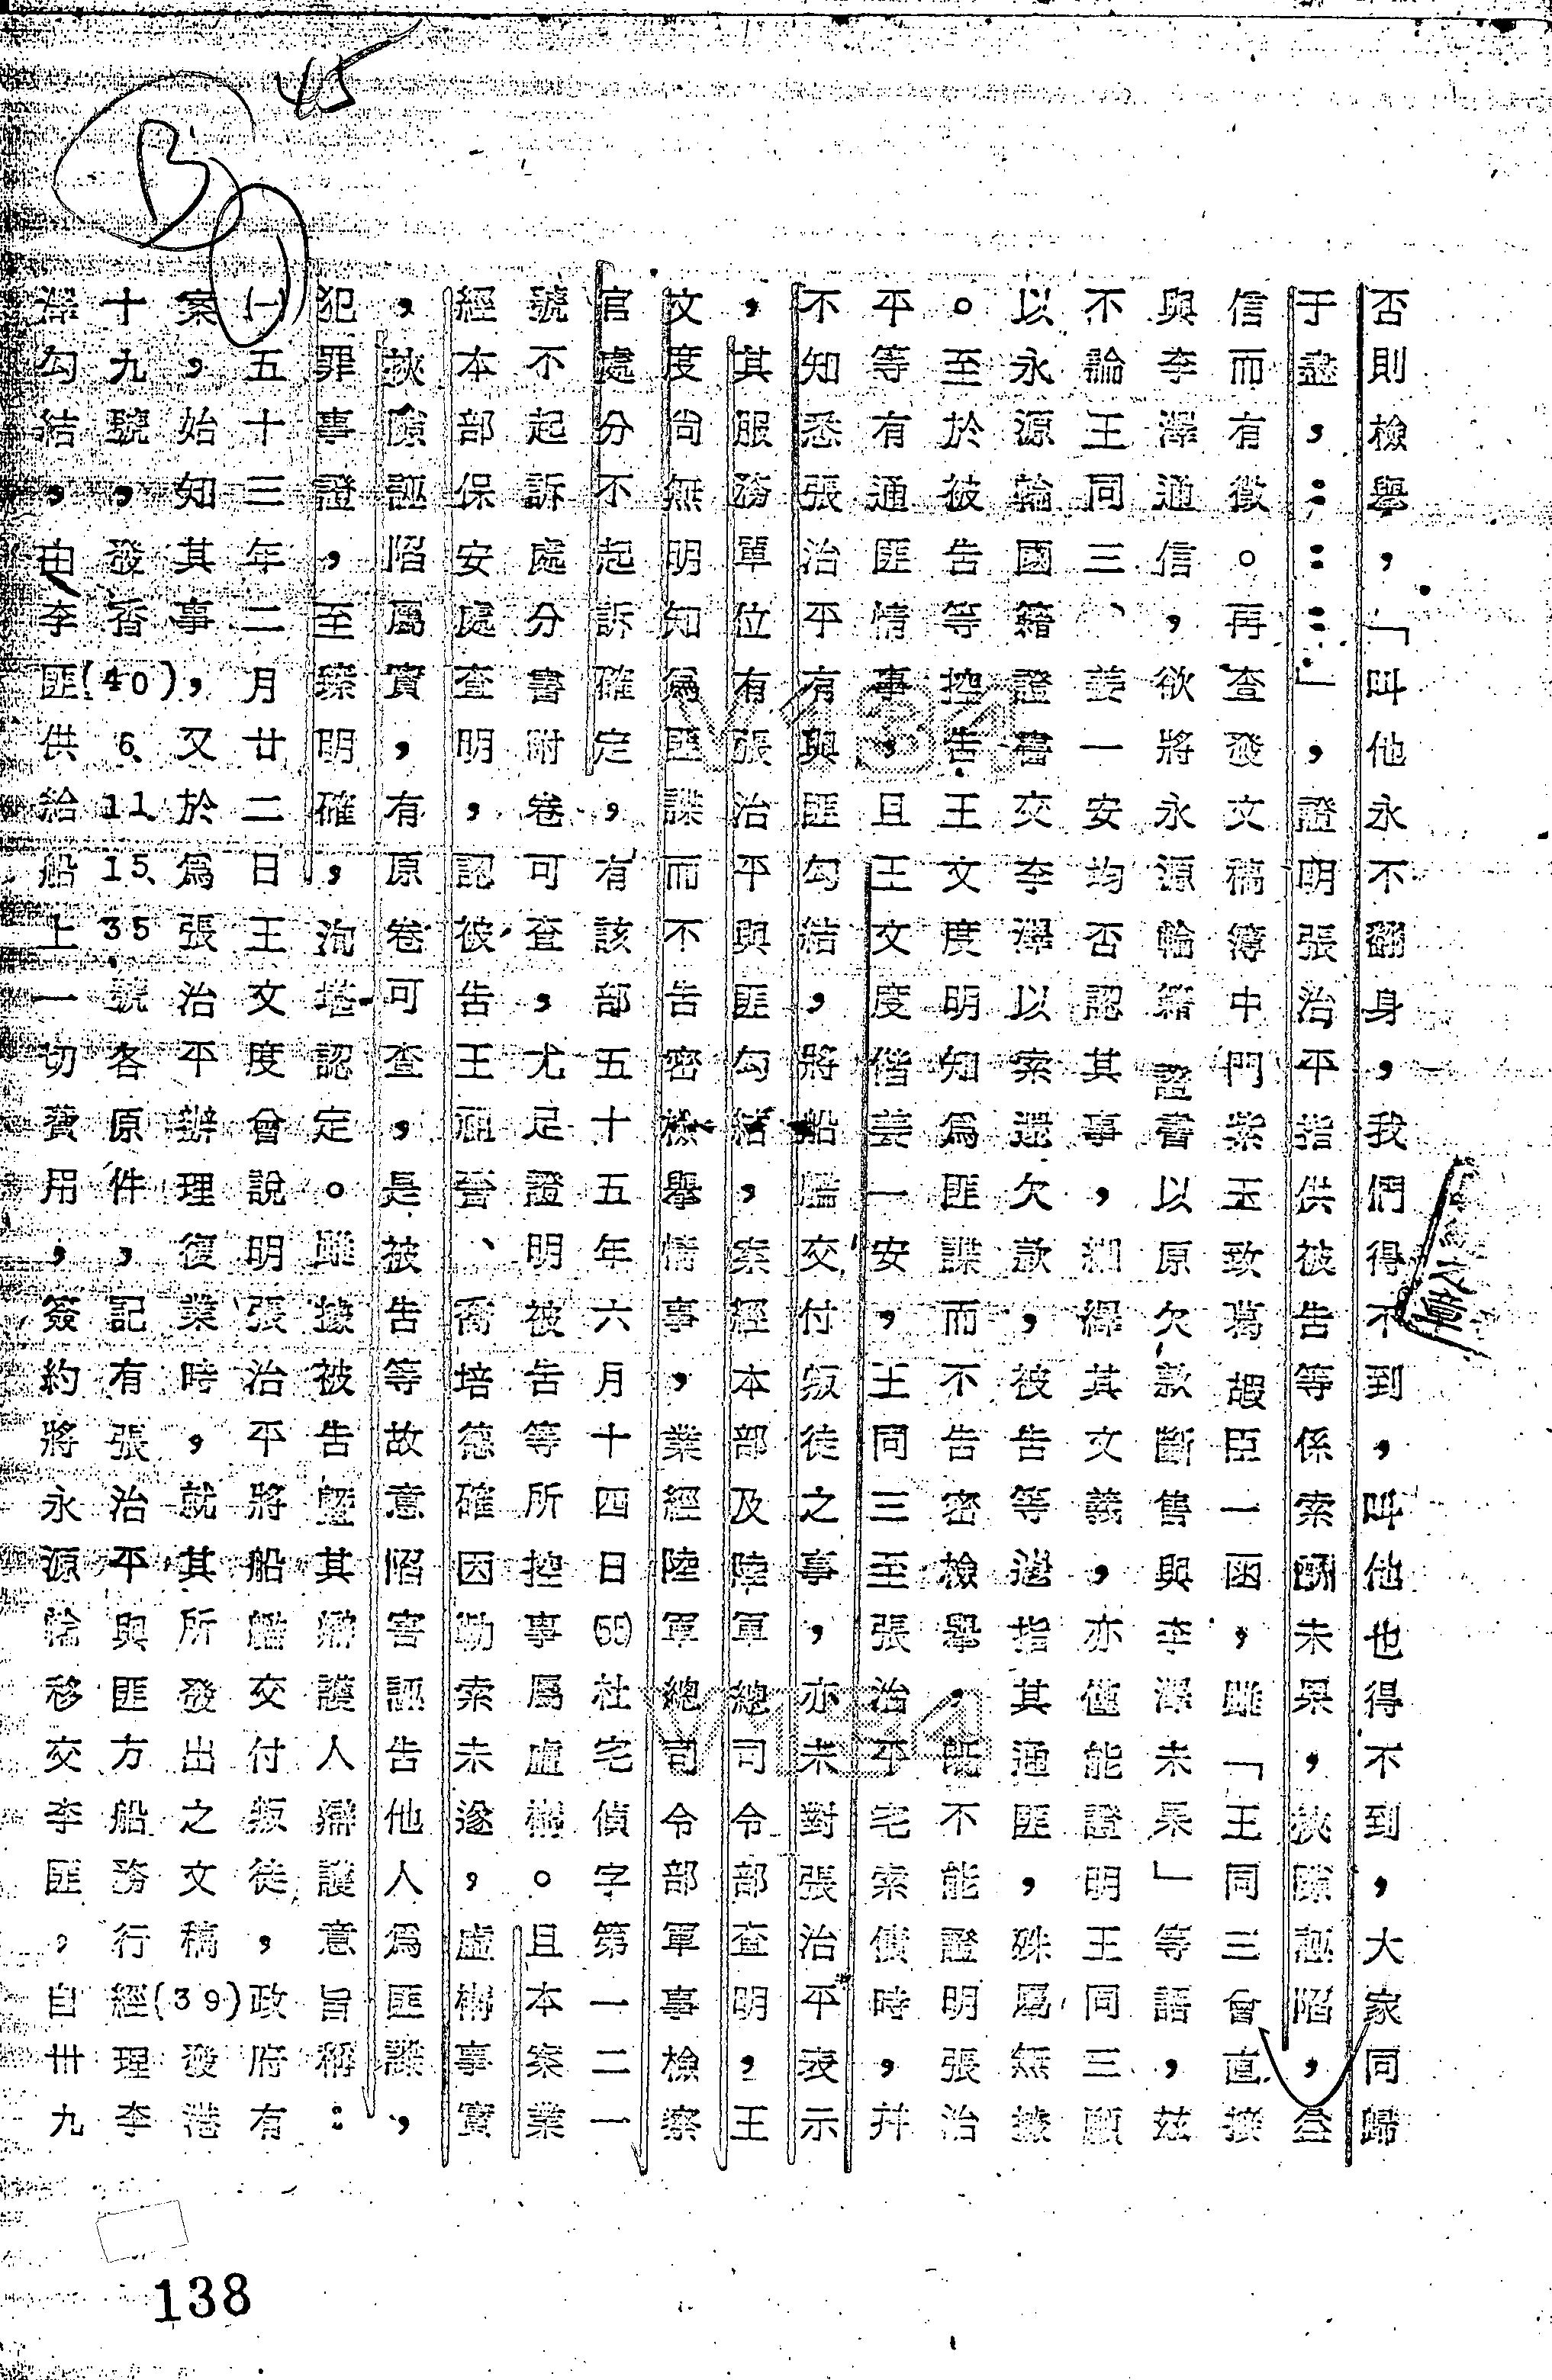 45
B
否則檢舉，「叫他永不翻身，我們得不到，叫他也得不到，大家同歸
于盡，……」，證明張治平指供被告等係索酬未果，挾隙誣陷，益
信而有徵。再查發文稿簿中門崇玉致葛覲臣一函，雖「王同三曾直接
與李澤通信，欲將永源輪籍證書以原欠款斷售與李澤未果」等語，茲
不論王同三、姜一安均否認其事，縱其文義，亦僅能證明王同三願
以永源輪國籍證書交李澤以索還欠款，被告等遂指其通匪，殊屬無據
。至於彼告等控告王文度明知為匪諜而不告密檢舉，既不能證明張治
平等有通匪情事，且王文度偕姜一安，王同三至張治平宅索債時，并
不知悉張治平有與匪勾結，將船艦交付叛徒之事，亦未對張治平表示
，其服務單位有張治平與匪勾結，案經本部及陸軍總司令部查明，王
文度尚無明知為匪諜而不告密檢舉情事，業經陸軍總司令部軍事檢察
官處分不起訴確定，有該部五十五年六月十四日(55)社宅偵字第一二一
號不起訴處分書附卷可查，尤足證明被告等所控事屬虛構。且本案業
經本部保安處查明，認彼告王祖晉、喬培德確因勒索未遂，虛構事實
，挾隙誣陷屬實，有原卷可查，是被告等故意陷害誣告他人為匪諜，
犯罪事證，至臻明確，洵堪認定。雖據被告暨其辯護人辯護意旨稱：
㈠五十三年二月廿二日王文度曾說明張治平將船艦交付叛徒，政府有
案，始知其事，又於為張治平辦理復業時，就其所發出之文稿(39)發港
十九號，發香(40)6、11、15、35號各原件，記有張治平與匪方船務行經理李
澤勾結，由李匪供給船上一切費用，簽約將永源輪移交李匪，自卅九
之章
138